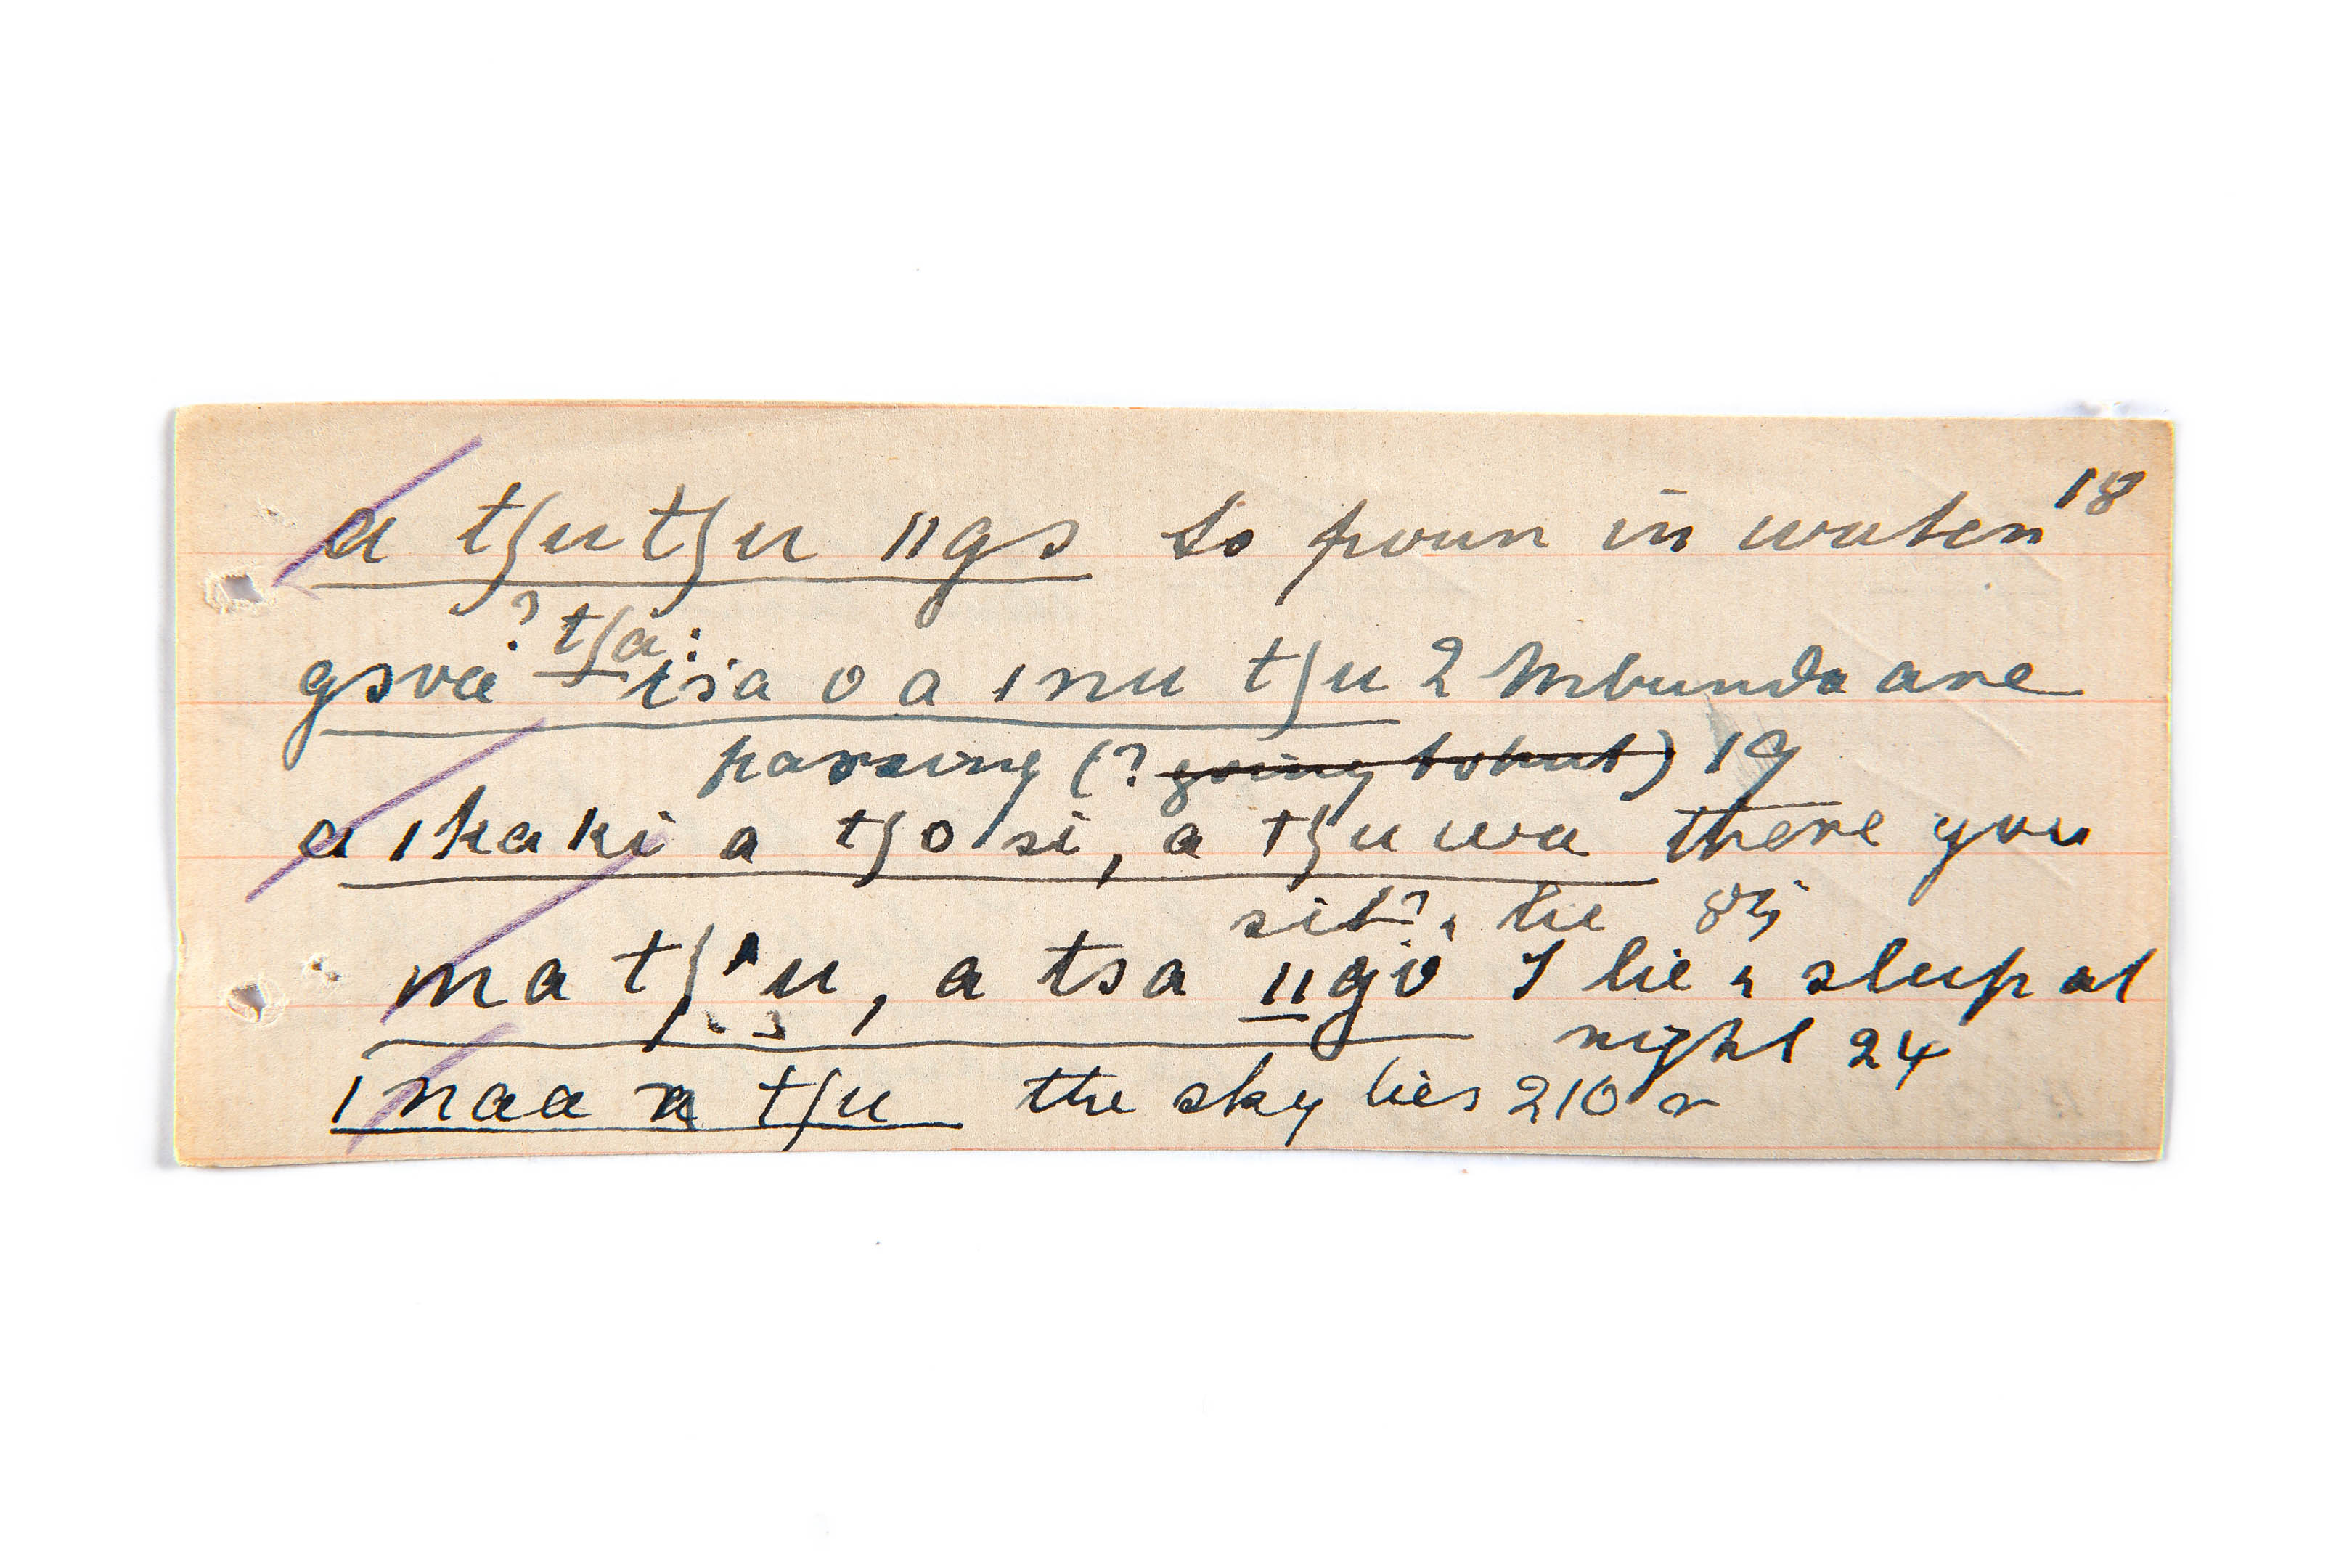 a tʃutʃu ǁgɔ to pour in water 18
? tʃa:
gɔva tsa o a ǀnu tʃu 2 Mbunda are
passing (? going to hut) 19
a ǀkaki a tʃosi, a tʃuwa there you
sit? & lie
ma tʃ'u, a tsa ǁgv I lie & sleep at
night 24
ǀnaa a tʃu the sky lies 210 r